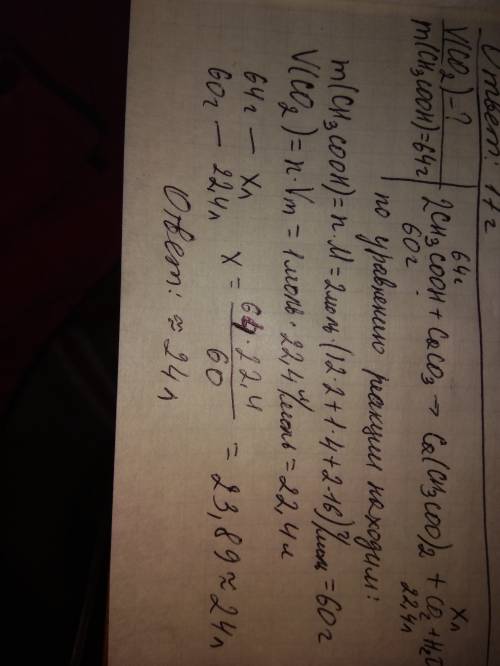 Ответ: 17 г
V(CO₂) = ?
m(CH₃COOH) = 64г
64г Xл
2CH₃COOH + CaCO₃ → Ca(CH₃COO)₂ + CO₂ + H₂O
60г 22,4л
по уравнению реакции находим:
m(CH₃COOH) = n·M = 2моль·(12·2+1·4+2·16) г/моль = 60г
V(CO₂) = n·Vm = 1моль·22,4 л/моль = 22,4л
64г — Xл
60г — 22,4л x = 64·22,4 / 60 = 23,89 ≈ 24л
Ответ: ≈ 24л